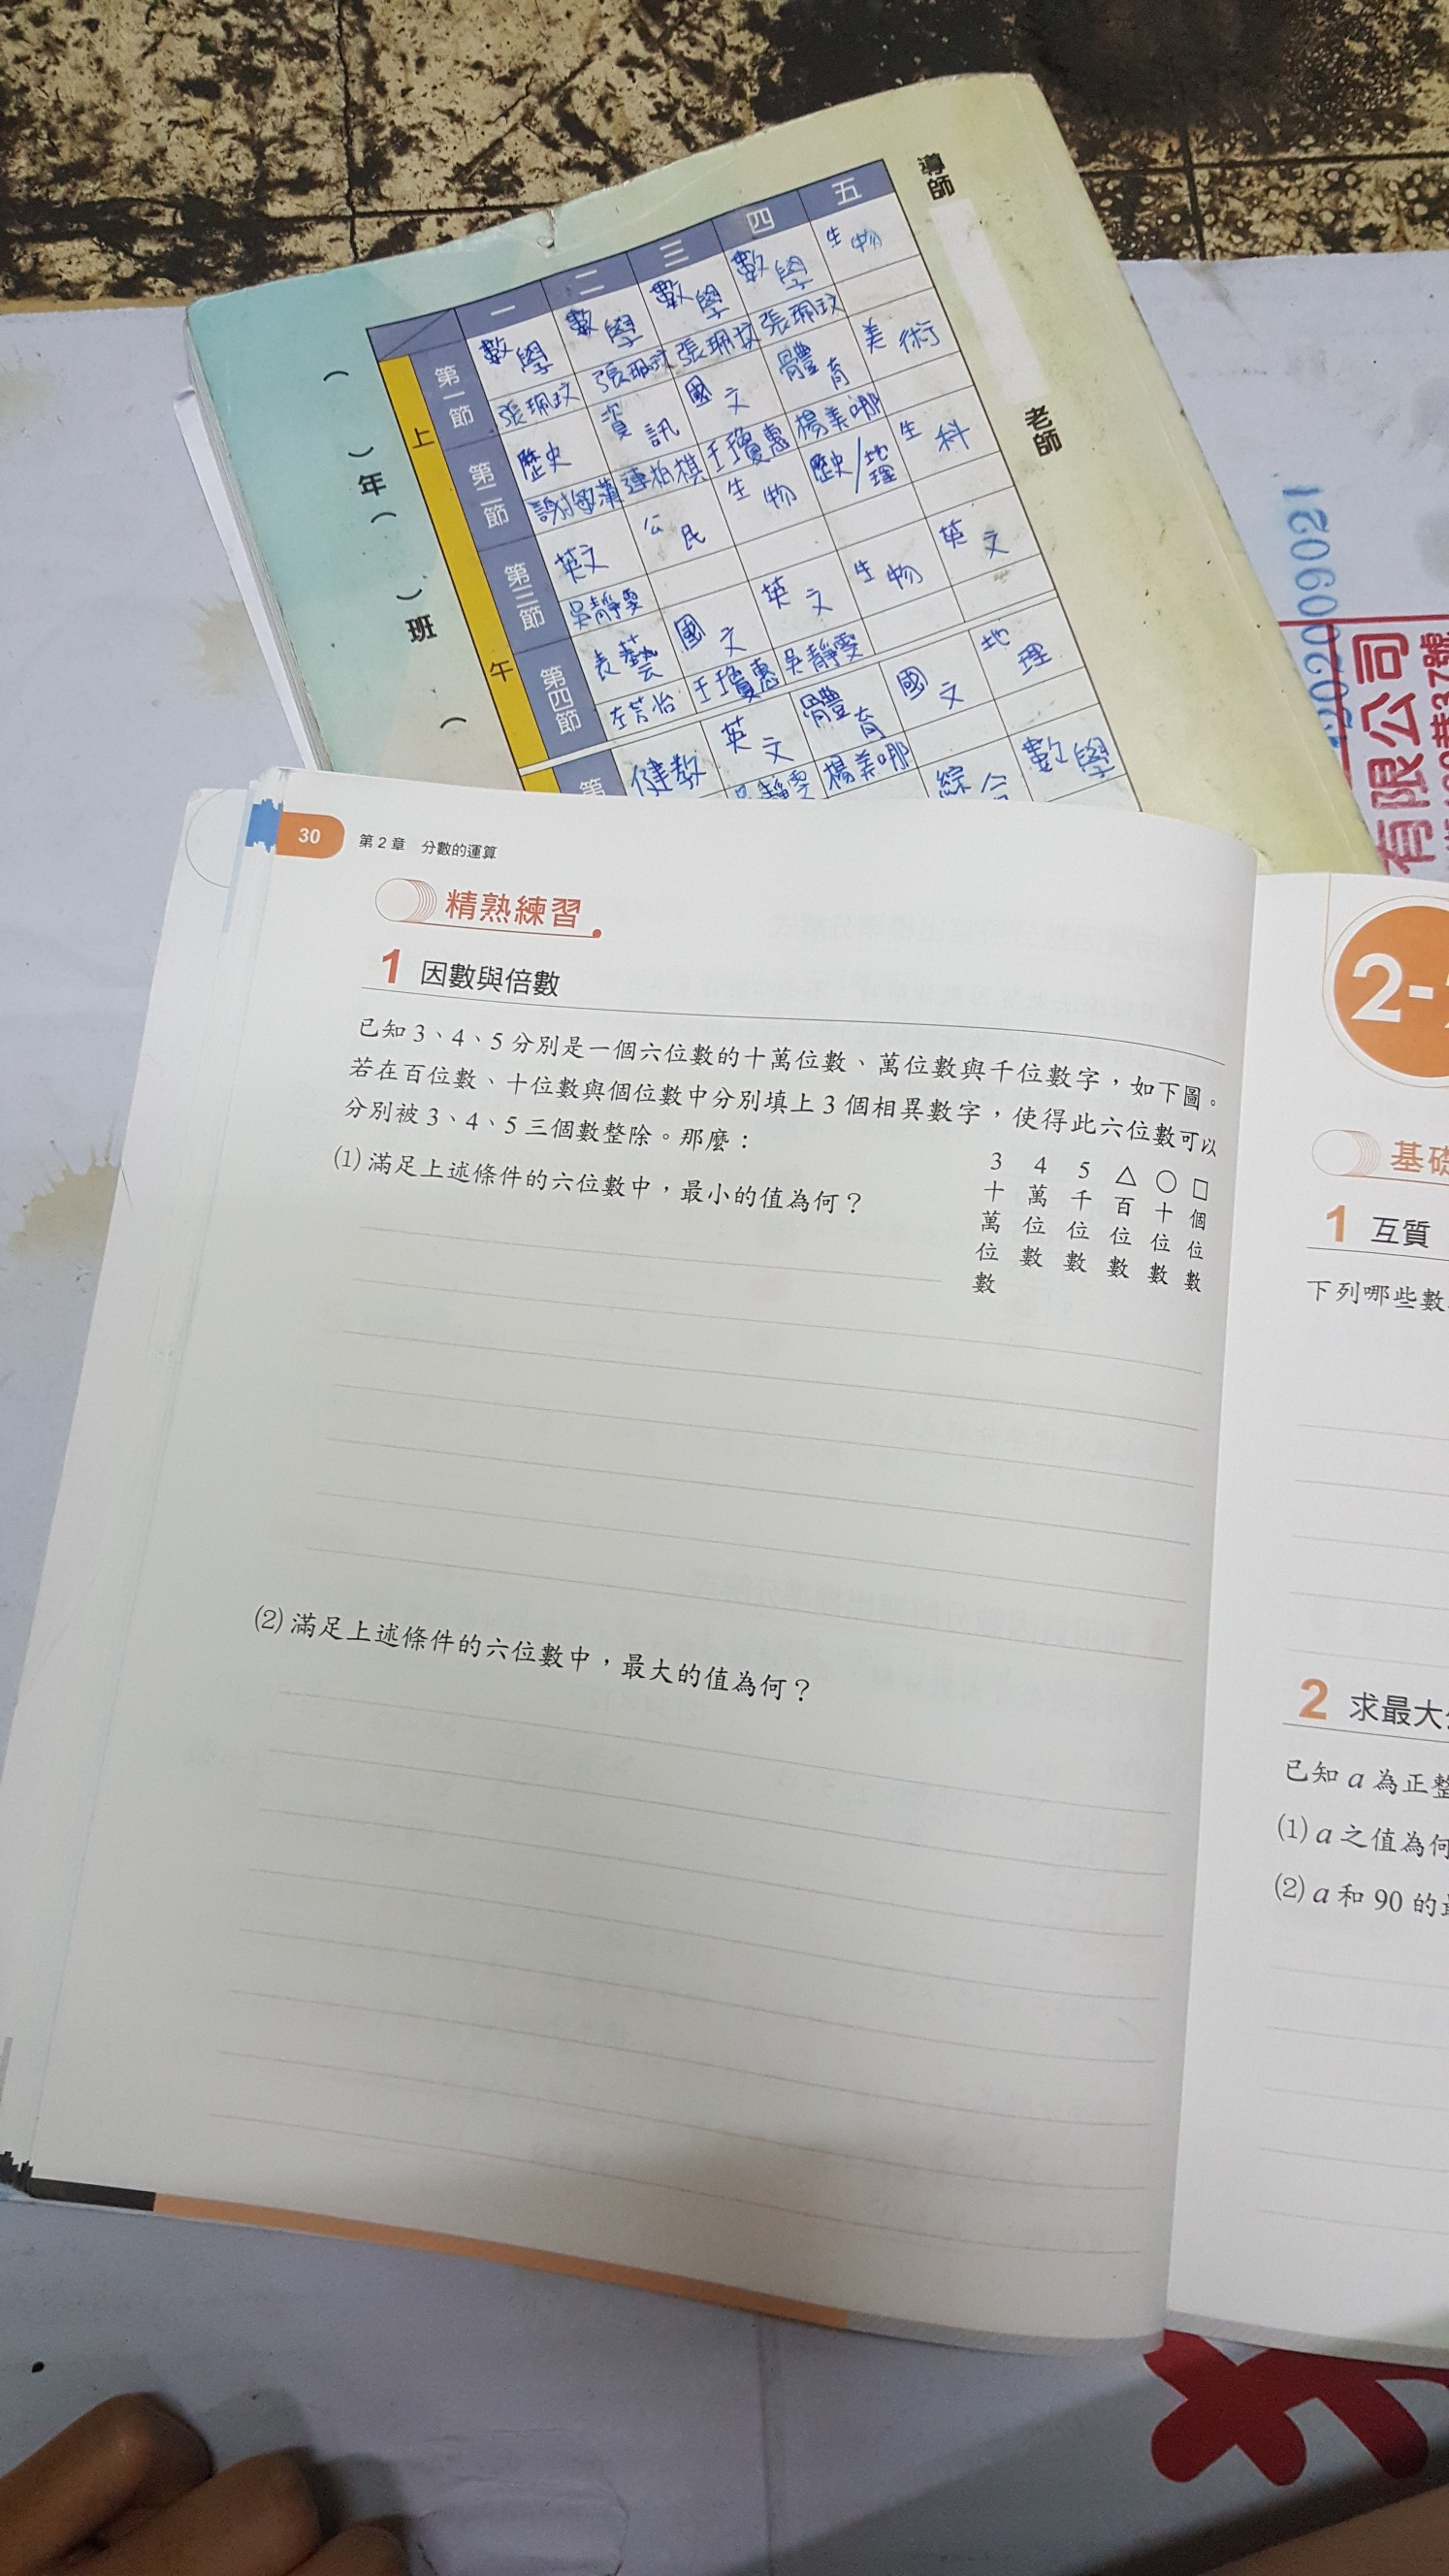 導師
老師
一 二 三 四 五
上
第一節 數學 數學 數學 數學 生物
張珮玟 張珮玟 張珮玟 張珮玟
第二節 歷史 資訊 國文 體育 美術
連柏棋 王瓊惠 楊美娜
第三節 英文 公民 生物 歷史/地理 生科
吳靜雯
午
第四節 表藝 國文 英文 生物 英文
王瓊惠 吳靜雯
第 健教 英文 體育 國文 地理
楊美娜 綜合 數學
( )年( )班 (
12060020
有限公司
30 第2章 分數的運算
精熟練習
1 因數與倍數
已知 3、4、5 分別是一個六位數的十萬位數、萬位數與千位數字,如下圖。
若在百位數、十位數與個位數中分別填上 3 個相異數字,使得此六位數可以
分別被 3、4、5 三個數整除。那麼:
(1) 滿足上述條件的六位數中,最小的值為何?
3 4 5 △ ○ □
十萬位數 萬位數 千位數 百位數 十位數 個位數
(2) 滿足上述條件的六位數中,最大的值為何?
2-
基礎
1 互質
下列哪些數
2 求最大
已知 a 為正整
(1) a 之值為何
(2) a 和 90 的